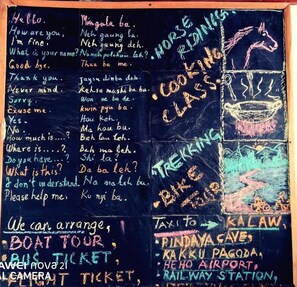 Hello. Mingala ba.
How are you. Neh gaung la.
I'm fine. Neh gaung deh.
What is your name?
Good bye. Thua ba me.
Thank you. Jayzu dinba deh.
Never mind. Keh sa mashi ba bu.
Sorry. Won ne ba de.
Excuse me kwin pyu ba.
Yes. Hou keh.
No. Ma hou bu.
How much is....? Beh lau leh.
Where is.....? Beh ma leh.
Do you have....? Shi la?
What is this? Da ba leh?
I don't understand. Na ma leh bu.
Please help me. Ku nyi ba.
HORSE
RIDING.
COOKING
CLASS.
TREKKING
BIKE
TOUR
We can arrange,
BOAT TOUR
BUS TICKET,
FLIGHT TICKET,
Taxi to → KALAW,
PINDAYA CAVE,
KAKKU PAGODA,
HEHO AIRPORT,
RAILWAY STATION,
nova 2i
CAMERA